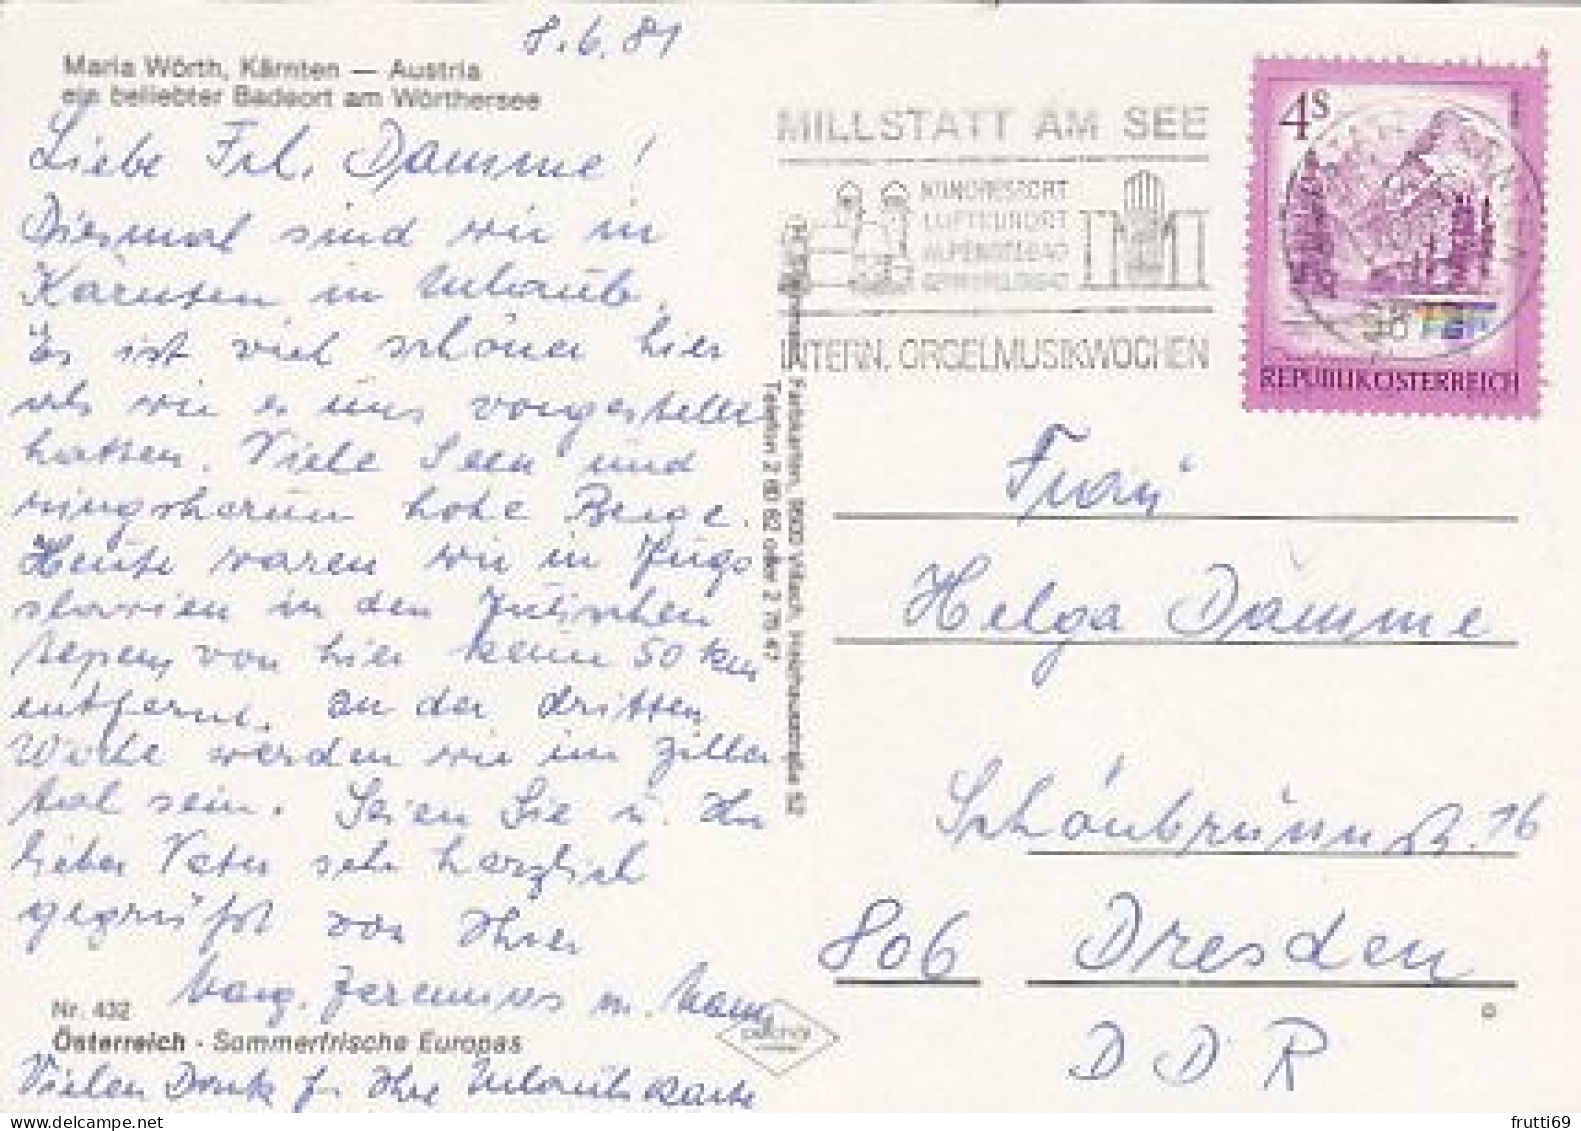 8.6.81
Maria Wörth, Kärnten — Austria
ein beliebter Badeort am Wörthersee
Liebe Frl. Damme!
Diesmal sind wir in
Kärnten in Urlaub.
Es ist viel schöner hier
als wir es uns vorgestellt
hatten. Viele Seen und
ringsherum hohe Berge.
Heute waren wir in Jugo
slavien in den Julischen
Alpen, von hier kaum 50 km
entfernt. An der dritten
Woche werden wir im Ziller
tal sein. Seien Sie u. Ihr
lieber Vater sehr herzlich
gegrüßt von Ihrer
Marg. u. Mann
Nr. 432
Österreich - Sommerfrische Europas
Vielen Dank f. Ihre Urlaubskarte
MILLSTATT AM SEE
KINDRESORT
LUFTKURORT
INTERN. ORGELMUSIKWOCHEN
4S
REPUBLIK ÖSTERREICH
Farbkarten, 9500 Villach,
Telefon 2 60 62 oder 2 75 47
Frau
Helga Damme
Schönbrunnstr. 16
806 Dresden
DDR
frutti69